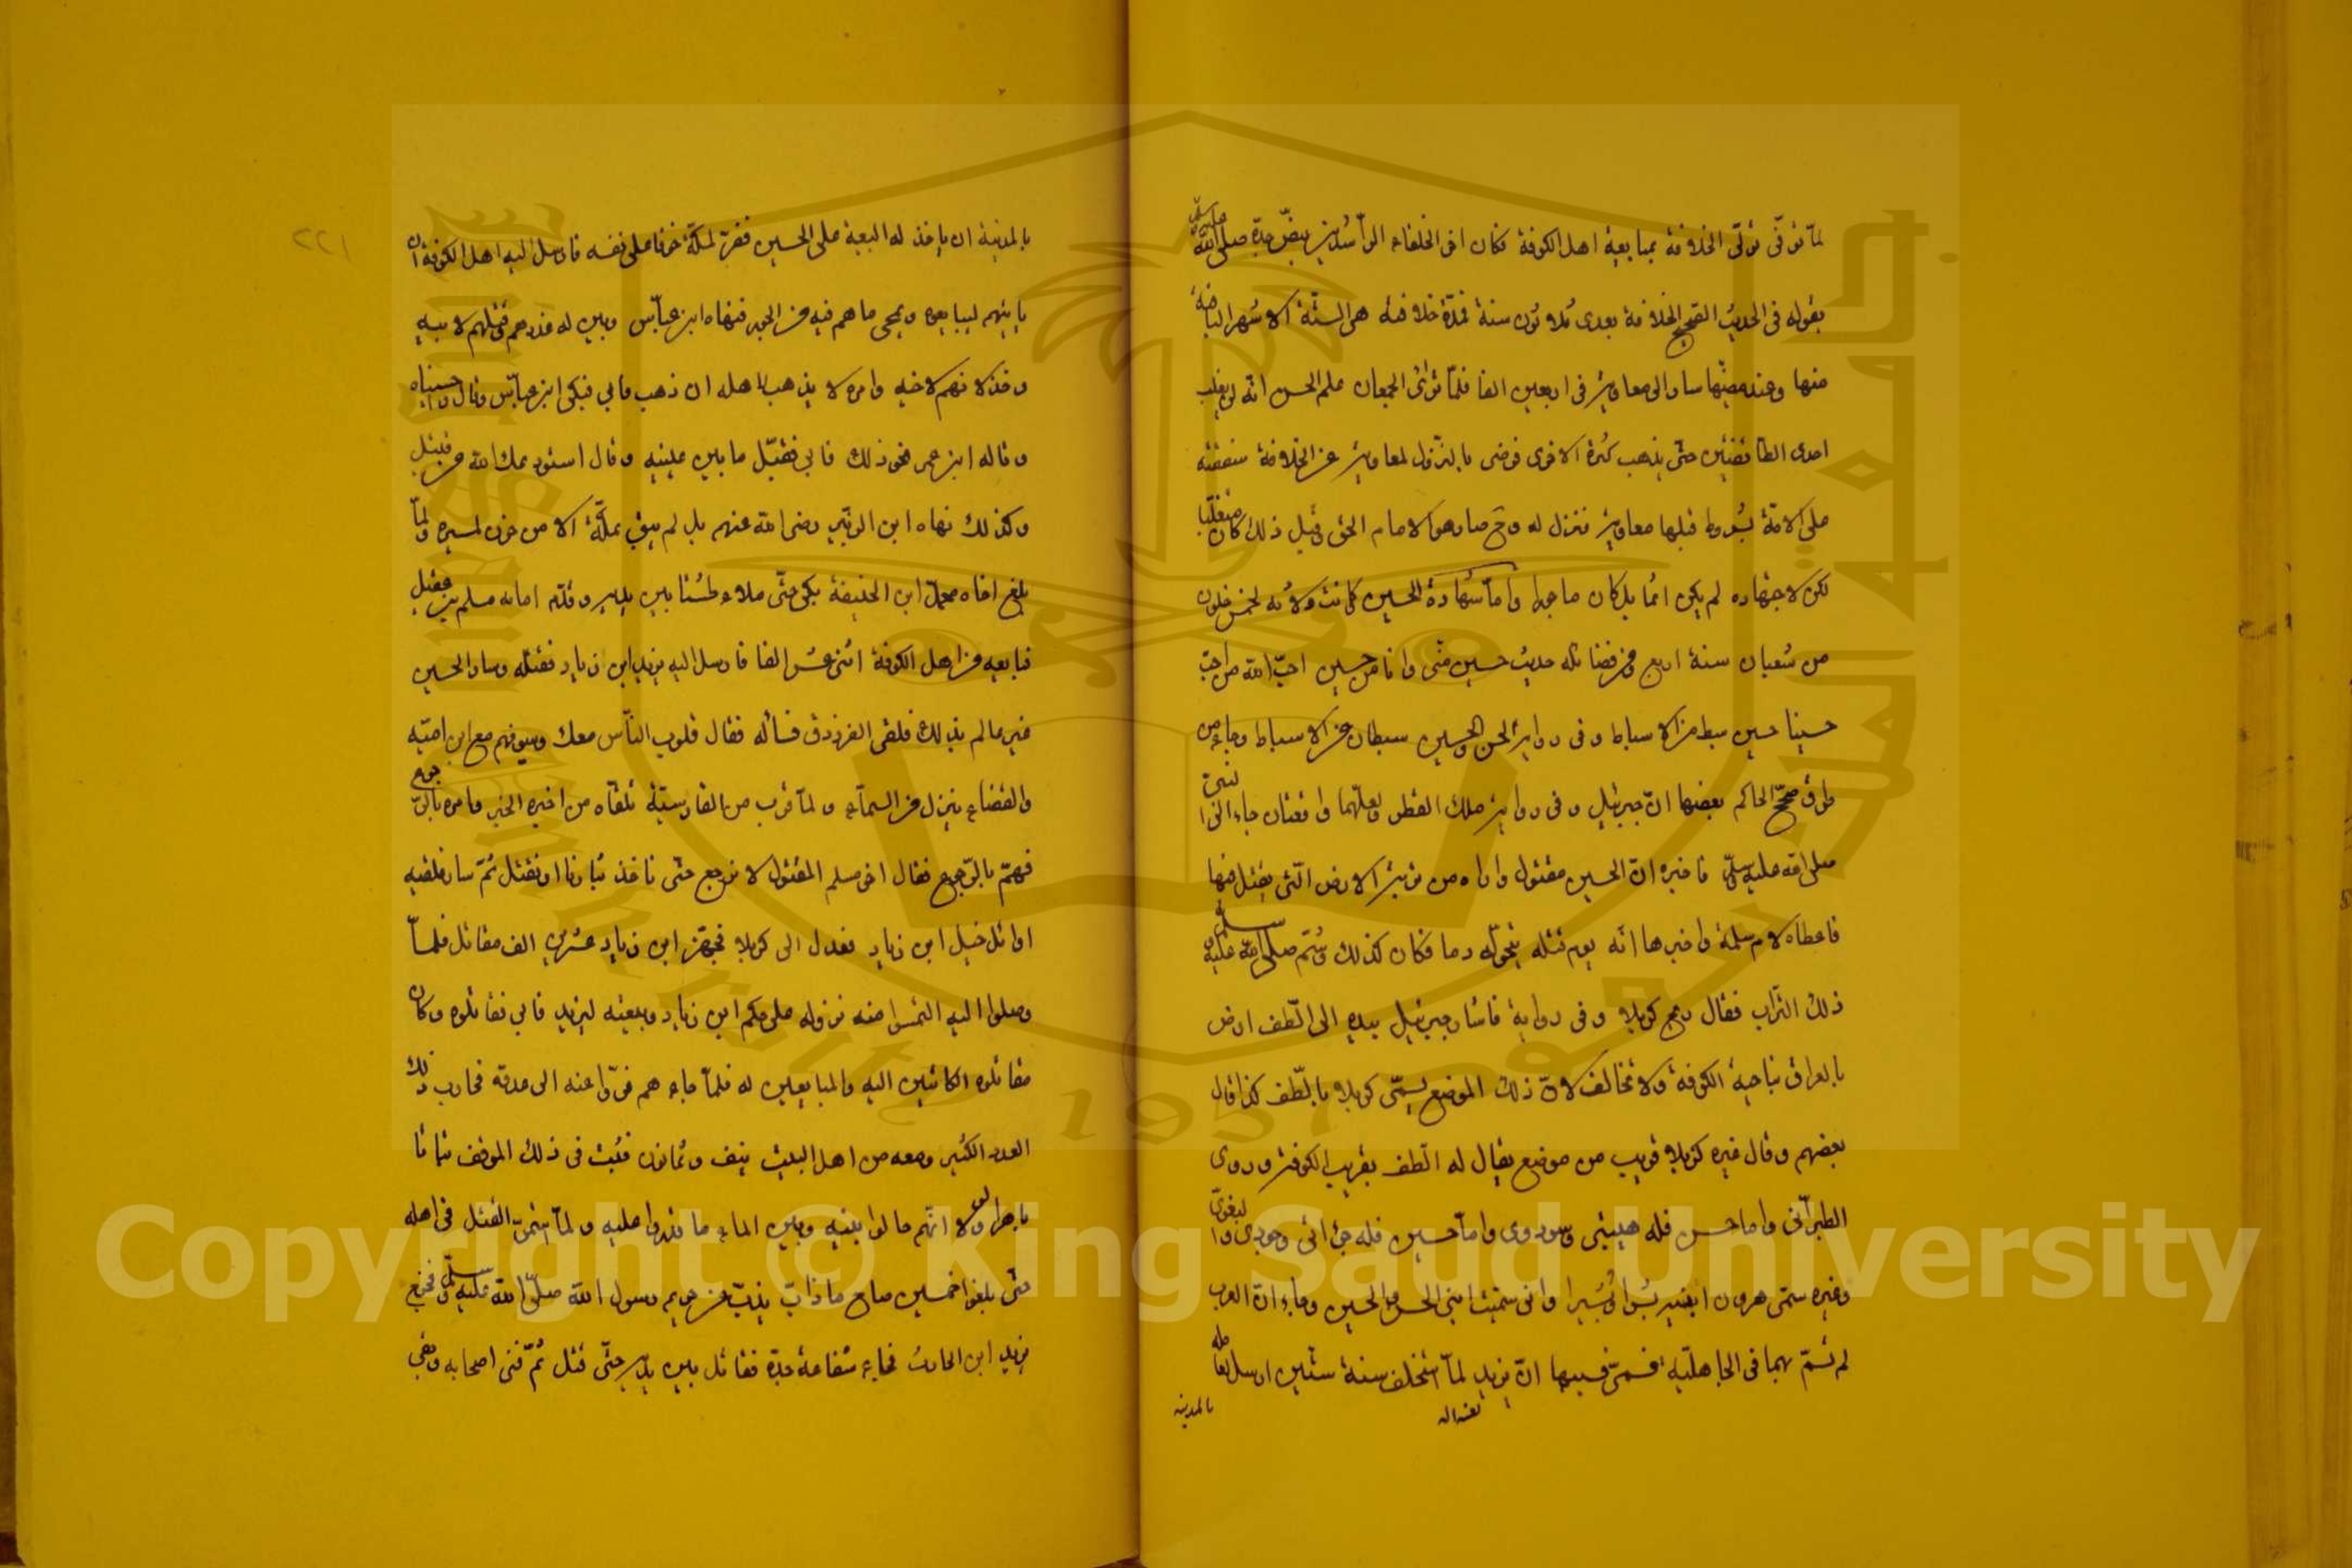 لمّا توفى تولّى الخلافة بمبايعة اهل الكوفة فكان اخر الخلفاء الراشدين بنصّ جدّه صلى الله عليه وسلم
بقوله فى الحديث الصحيح الخلافة بعدى ثلاثون سنة فمدّة خلافته هى الستّة الاشهر الباقية
منها وعند مضيّها سار الى معاوية فى اربعين الفا فلمّا ترائى الجمعان علم الحسن انّه لن يغلب
احدى الطائفتين حتى يذهب كثرة الاخرى فرضى بالنّزول لمعاوية عن الخلافة شفقة
على الامّة بشروط قبلها معاوية فنزل له وح صار هو الامام الحق وقبل ذلك كان متغلّبا
لكن لاجتهاده لم يكن اثما بل كان ماجورا وامّا شهادة الحسين كانت ولادته لخمس خلون
من شعبان سنة اربع ومن فضائله حديث حسين منّى وانا من حسين احبّ الله من احبّ
حسينا حسين سبط من الاسباط وفى رواية الحسن والحسين سبطان من الاسباط وجاء من
طرق صحّح الحاكم بعضها انّ جبرئيل وفى رواية ملك القطر ولعلّهما واقعتان جاء الى النبىّ
صلى الله عليه وسلّم فاخبره انّ الحسين مقتول واراه من تربة الارض الّتى يقتل فيها
فاعطاه لام سلمة واخبرها انّه يوم قتله يتحوّل دما فكان كذلك وشمّ صلى الله عليه وسلم
ذلك التراب فقال ريح كربلا وفى رواية فاشار جبرئيل بيده الى الطّف ارض
بالعراق بناحية الكوفة ولا تخالف لانّ ذلك الموضع يسمّى كربلا بالطّف كذا قال
بعضهم وقال غيره كربلا قريب من موضع يقال له الطّف بقرب الكوفة وروى
الطبرانى واما حسن فله هيبتى وسوددى وامّا حسين فله جرأتى وجودى والبغوىّ
وغيره سمّى هرون ابنيه شبرا وشبيرا وانى سمّيت ابنىّ الحسن والحسين وجاء انّ العرب
لم تسمّ بهما فى الجاهليّة انّ يزيد لمّا استخلف سنة ستّين ارسل لعامله
لعنه الله
بالمدينة
١٢٢
بالمدينة ان ياخذ له البيعة على الحسين ففرّ لمكّة خوفا على نفسه فارسل اليه اهل الكوفة ان
ياتيهم ليبايعوه ويمحى ما هم فيه من الجور فنهاه ابن عبّاس وبين له غدرهم وقتلهم لابيه
وخذلانهم لاخيه وامره لا يذهب باهله ان ذهب فابى فبكى ابن عبّاس وقال واحسيناه
وقال له ابن عمر نحو ذلك فابى فقبّل ما بين عينيه وقال استودعك الله من قتيل
وكذلك نهاه ابن الزبير رضى الله عنهم بل لم يبق بمكّة الا من حزن لمسيره ولمّا
بلغ اخاه محمّد ابن الحنيفة بكى حتى ملاء طستا بين يديه وقدّم امامه مسلم بن عقيل
فبايعه من اهل الكوفة اثنى عشر الفا فارسل اليه يزيد ابن زياد فقتله وسار الحسين
غير عالم بذلك فلقى الفرزدق فسأله فقال قلوب النّاس معك وسيوفهم مع ابن اميّة
والقضاء ينزل من السماء ولمّا قرب من القادسيّة تلقاه من اخبره الخبر وامره بالرجوع
فهمّ بالرّجوع فقال اخى مسلم المقتول لا نرجع حتى ناخذ بثارنا او نقتل ثمّ سار فلقيه
اوائل خيل ابن زياد فعدل الى كربلا فجهّز ابن زياد عشرين الف مقاتل فلمّا
وصلوا اليه التمسوا منه نزوله على حكم ابن زياد وبيعته ليزيد فابى فقاتلوه وكان
مقاتلوه الكاتبين اليه والمبايعين له فلمّا جاء هم فرّوا عنه الى عدوّه فحارب ذلك
العدد الكثير ومعه من اهل البيت نيف وثمانون فثبت فى ذلك الموقف ثباتا
باهرا ولولا انّهم حالوا بينه وبين الماء ما قدروا عليه ولمّا القتل فى اهله
حتى بلغوا خمسين صاح ما ذابّ يذبّ عن حريم رسول الله صلّى الله عليه وسلّم فخرج
يزيد ابن الحارث فجاء شفاعة جدّه فقاتل بين يديه حتّى قتل ثمّ فنى اصحابه وبقى